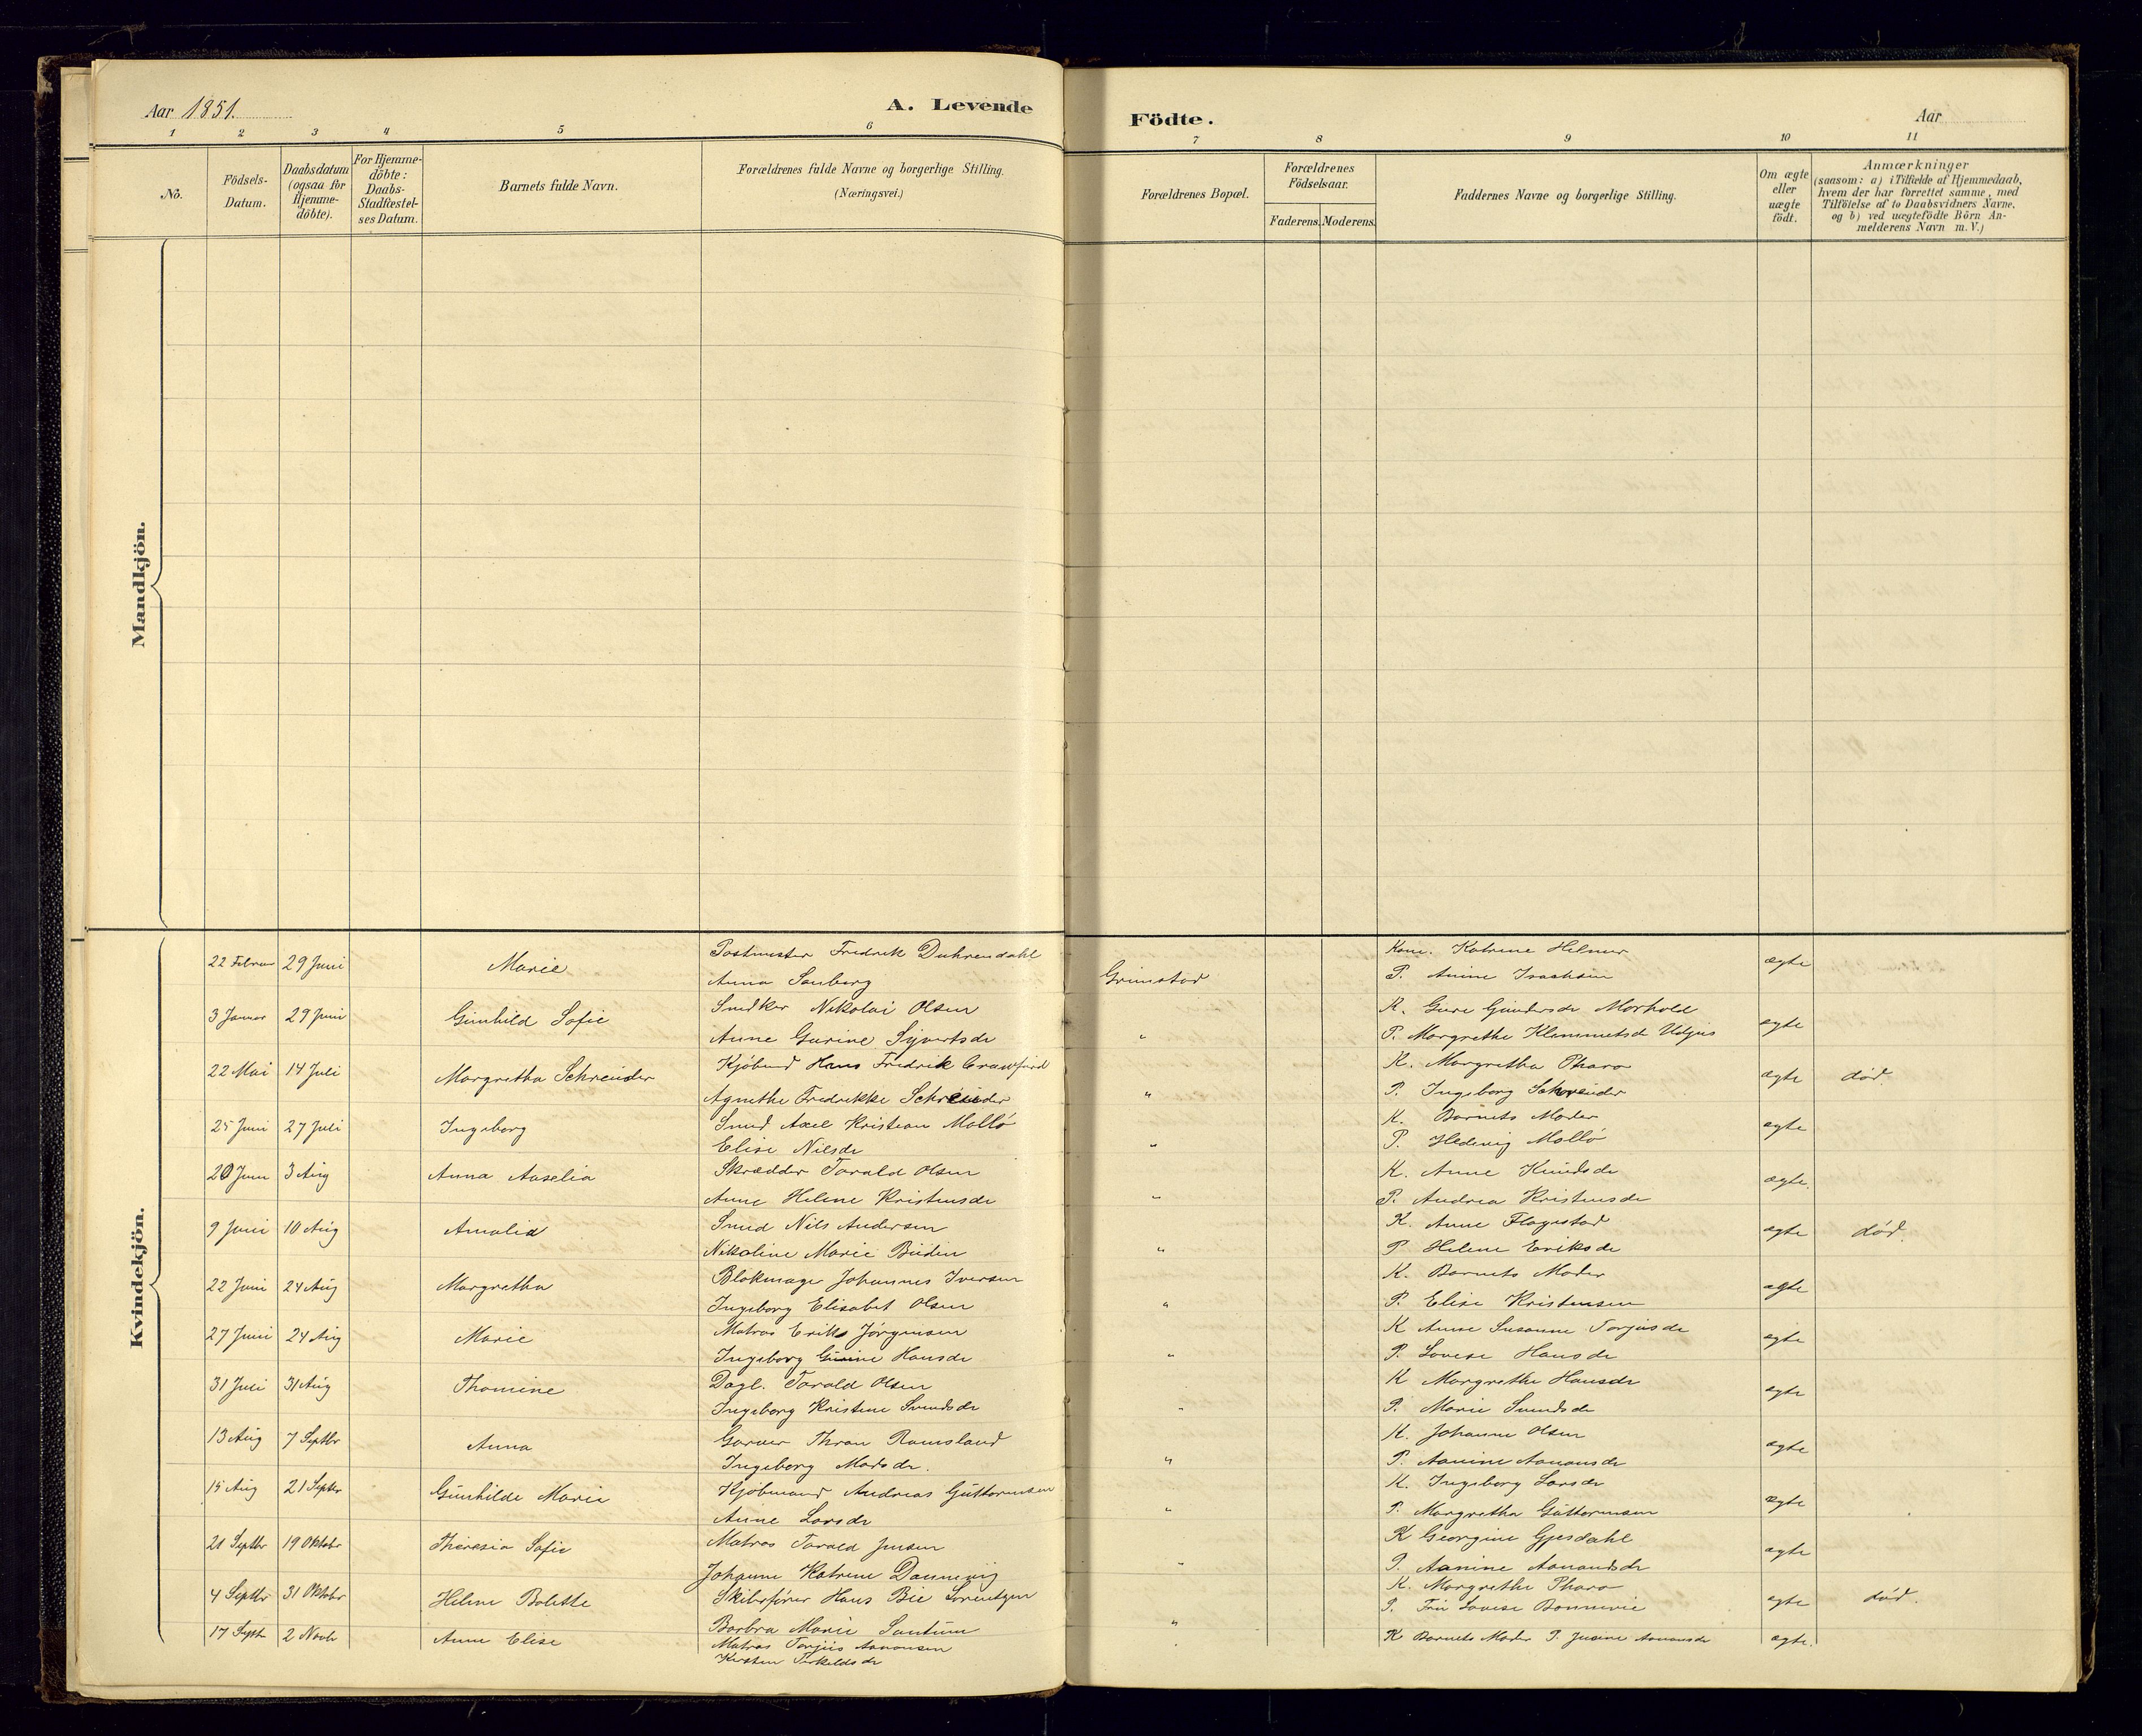 Aar 1851.
A. Levende
Födte.
Aar
1 2 3 4 5 6 7 8 9 10 11
No.
Födsels-Datum.
Daabsdatum (ogsaa for Hjemme-döbte).
For Hjemme-döbte: Daabs-Stadfæstel-ses Datum.
Barnets fulde Navn.
Forældrenes fulde Navne og borgerlige Stilling.
(Næringsvei.)
Forældrenes Bopæl.
Forældrenes Födselsaar.
Faderens. Moderens.
Faddernes Navne og borgerlige Stilling.
Om ægte eller uægte födt.
Anmærkninger
(saasom: a) i Tilfælde af Hjemmedaab,
hvem der har forrettet samme, med
Tilföielse af to Daabsvidners Navne,
og b) ved uægtefödte Börn An-
melderens Navn m. V.)
Mandkjön.
Kvindekjön.
22 Februar 29 Juni Marie Postmester Fredrik Duhrendahl Kone. Katrine Helmer
Anna Sanberg Grimstad P. Anine Isachsen ægte
3 Januar 29 Juni Gunhild Sofie Snedker Nikolai Olsen K. Gure Gundersdr Morhold
Anne Gurine Syvertsdr " P. Margrethe Klemmetsdr Udjus ægte
22 Mai 14 Juli Margretha Schreuder Kjöbmd Hans Fredrik Crawfurd K. Margretha Pharo
Agnethe Fredrikke Schreuder " P. Ingeborg Schreuder ægte død.
25 Juni 27 Juli Ingeborg Smed Axel Kristian Mollö K. Barnets Moder
Elise Nilsdr " P. Hedevig Mollö ægte
20 Juni 3 Aug Anna Aaselia Skrædder Tarald Olsen K. Anne Knudsdr
Anne Helene Kristensdr " P. Andrea Kristensdr ægte.
9 Juni 10 Aug Amalia Smed Nils Andersen K. Anne Flagestad
Nikoline Marie Budin " P Helene Eriksdr ægte død.
22 Juni 24 Aug Margretha Blokmager Johannes Iversen K. Barnets Moder
Ingeborg Elisabet Olsen " P. Elise Kristensen ægte
27 Juni 24 Aug Marie Matros Erik Jörgensen K Anne Susanne Torjusdr
Ingeborg Gurine Hansdr " P. Lovise Hansdr ægte
31 Juli 31 Aug Thomine Dagl. Tarald Olsen K Margrethe Hansdr
Ingeborg Kristine Svendsdr " P. Marie Svendsdr ægte
13 Aug 7 Septbr Anna Garver Thron Ramsland K. Johanne Olsen
Ingeborg Madsdr. " P. Aanine Aanonsdr ægte
15 Aug 21 Septbr Gunhilde Marie Kjöbmand Andreas Guttormsen K. Ingeborg Larsdr
Anne Larsdr " P. Margretha Guttormsen ægte
21 Septbr 19 Oktobr Theresia Sofie Matros Tarald Jensen K Georgine Gjesdahl
Johanne Katrine Dannevig " P. Aanine Aanondsdr ægte
4 Septbr 31 Oktobr Helene Bolette Skibsförer Hans Bie Lorentzen K. Margrethe Pharo
Barbra Marie Santum " P. Frü Lovise Bonnevie ægte død.
17 Septr 2 Novbr Anne Elise Matros Torjus Aanonsen K Barnets Moder P. Aanonsdr ægte.
Kirsten Terkeldsdr